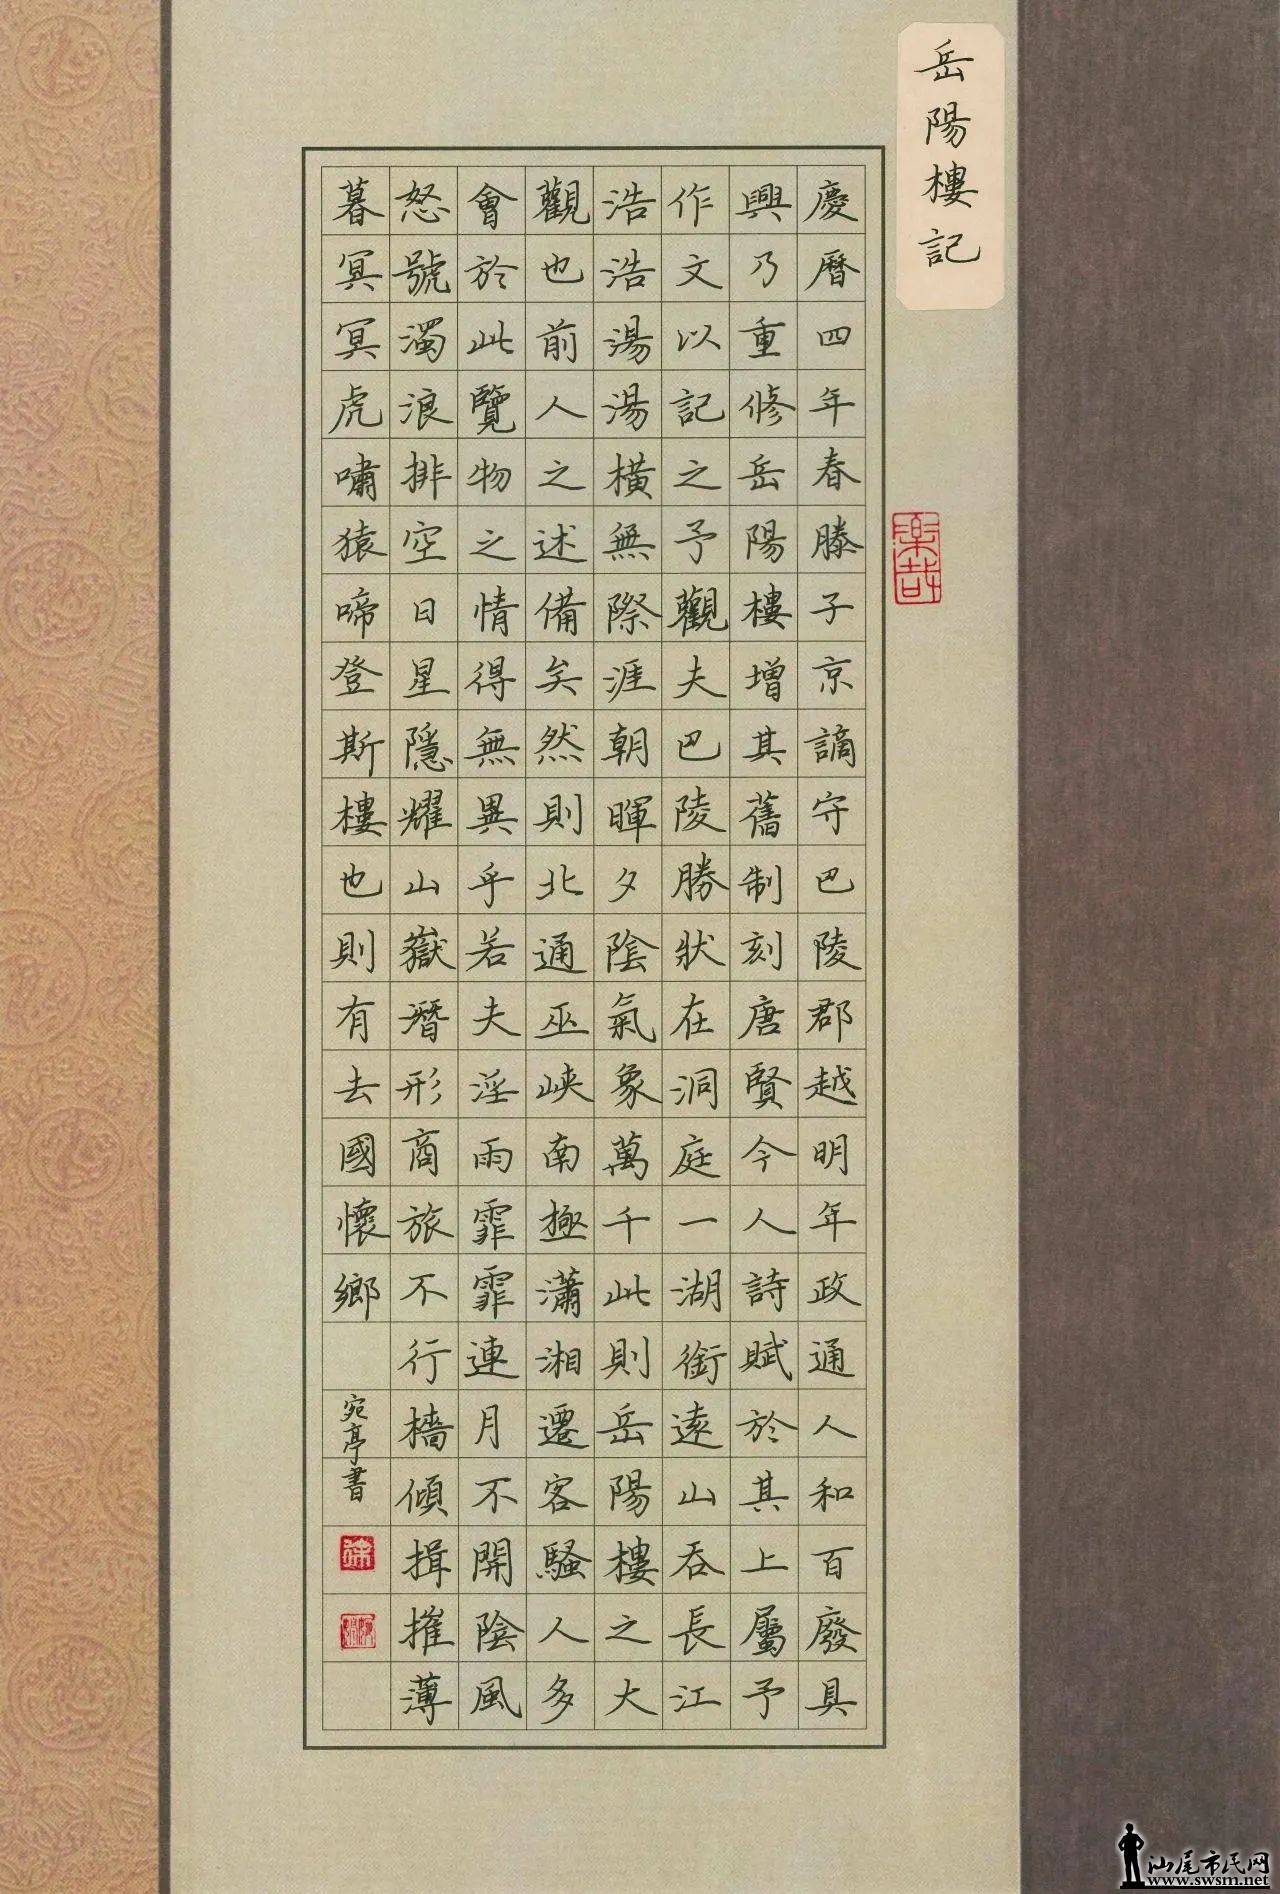 岳陽樓記
慶曆四年春滕子京謫守巴陵郡越明年政通人和百廢具
興乃重修岳陽樓增其舊制刻唐賢今人詩賦於其上屬予
作文以記之予觀夫巴陵勝狀在洞庭一湖銜遠山吞長江
浩浩湯湯橫無際涯朝暉夕陰氣象萬千此則岳陽樓之大
觀也前人之述備矣然則北通巫峽南極瀟湘遷客騷人多
會於此覽物之情得無異乎若夫淫雨霏霏連月不開陰風
怒號濁浪排空日星隱耀山嶽潛形商旅不行檣傾揖摧薄
暮冥冥虎嘯猿啼登斯樓也則有去國懷鄉
宛亭書
汕尾市民网
www.swsm.net